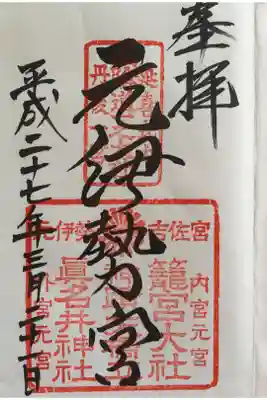 奉拝
元伊勢宮
平成二十七年三月二十一日
丹後
伊勢
吉佐宮
内宮元宮
籠宮大社
眞名井神社
外宮元宮